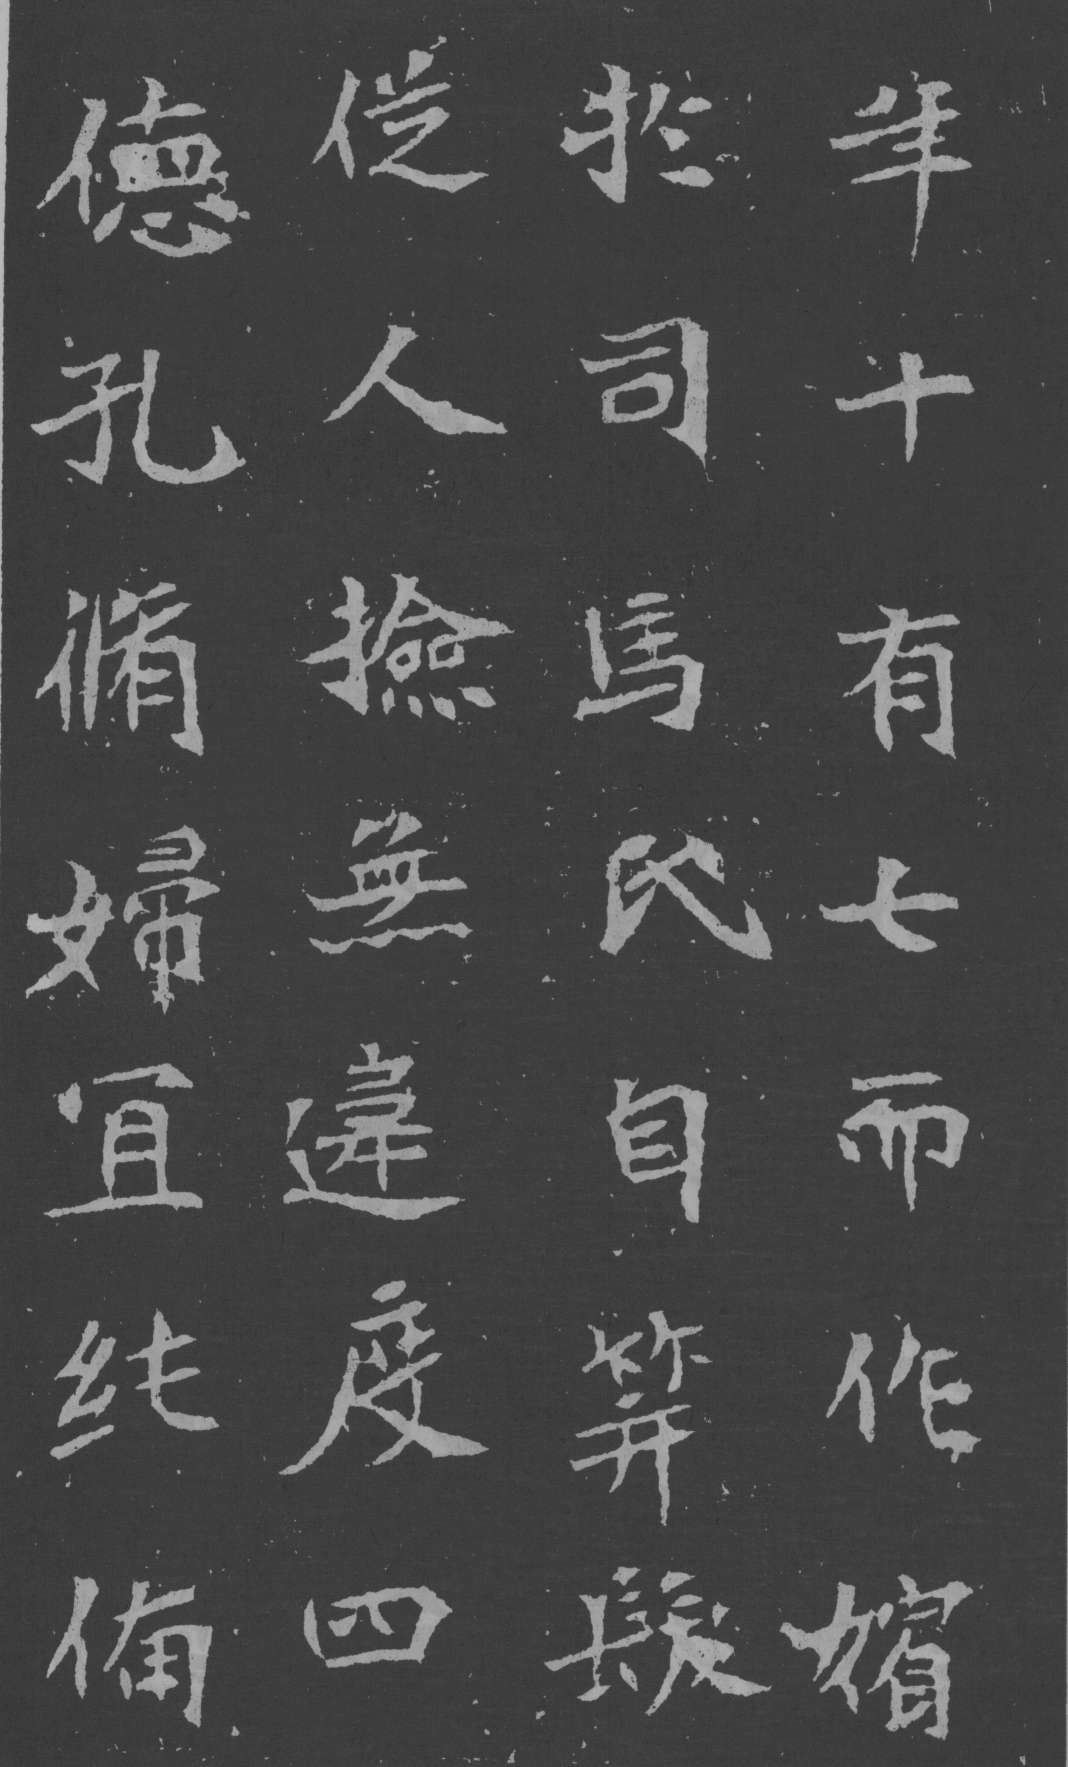 年十有七而作嬪
扵司馬氏自笄髮
從人撿無違度四
德孔脩婦宜純備